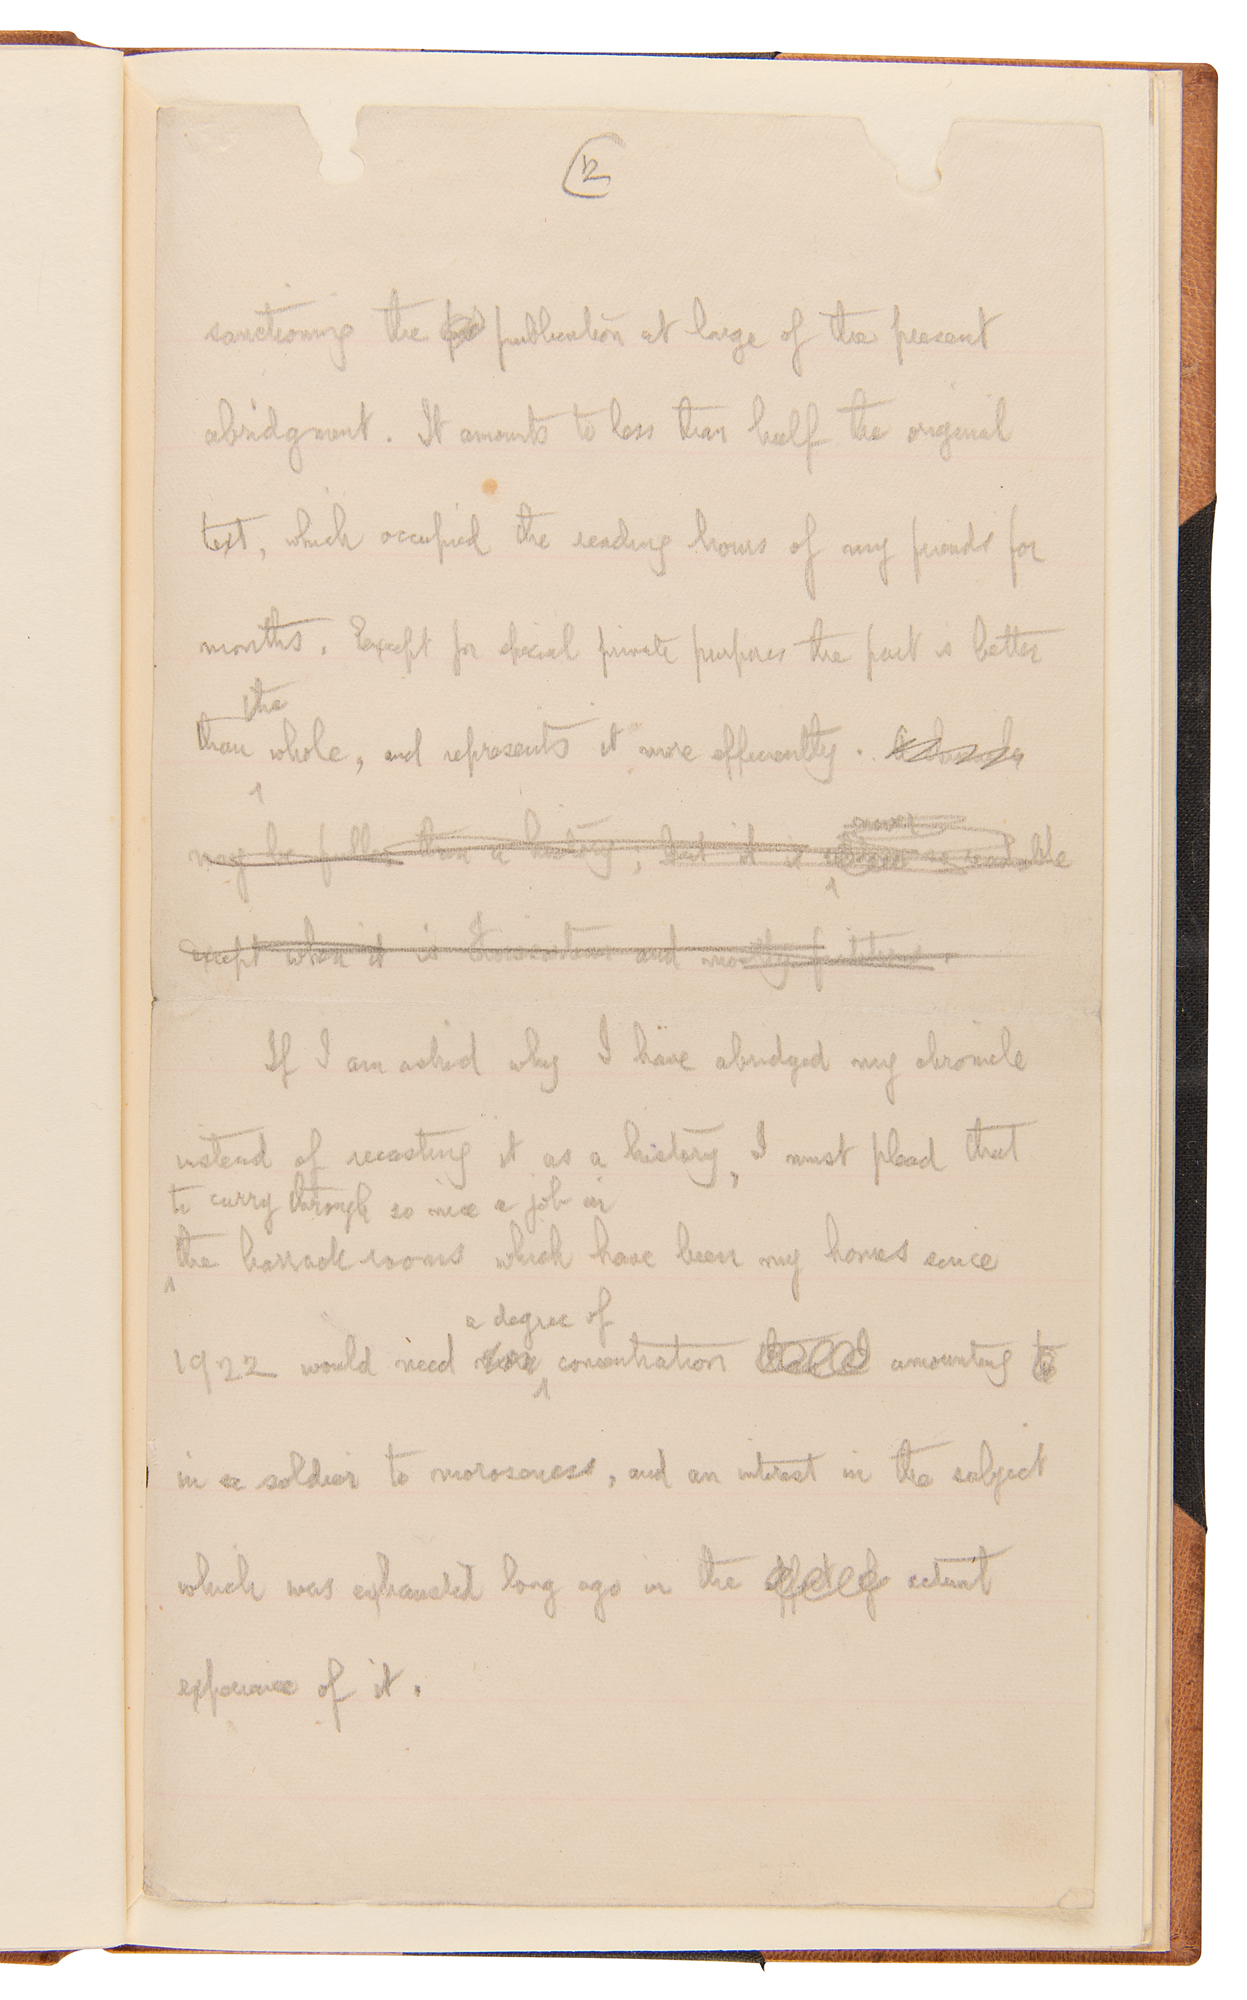 2
sanctioning the publication at large of the present
abridgment. It amounts to less than half the original
text, which occupied the reading hours of my friends for
months. Except for special private purposes the part is better
the
than whole, and represents it more efficiently.
may be fuller than a history, but it is never so readable
except when it is and mostly fictitious.
If I am asked why I have abridged my chronicle
instead of recasting it as a history, I must plead that
to carry through so nice a job in
the barrack-rooms which have been my homes since
a degree of
1922 would need concentration amounting to
in a soldier to moroseness, and an interest in the subject
which was exhausted long ago in the actual
experience of it.